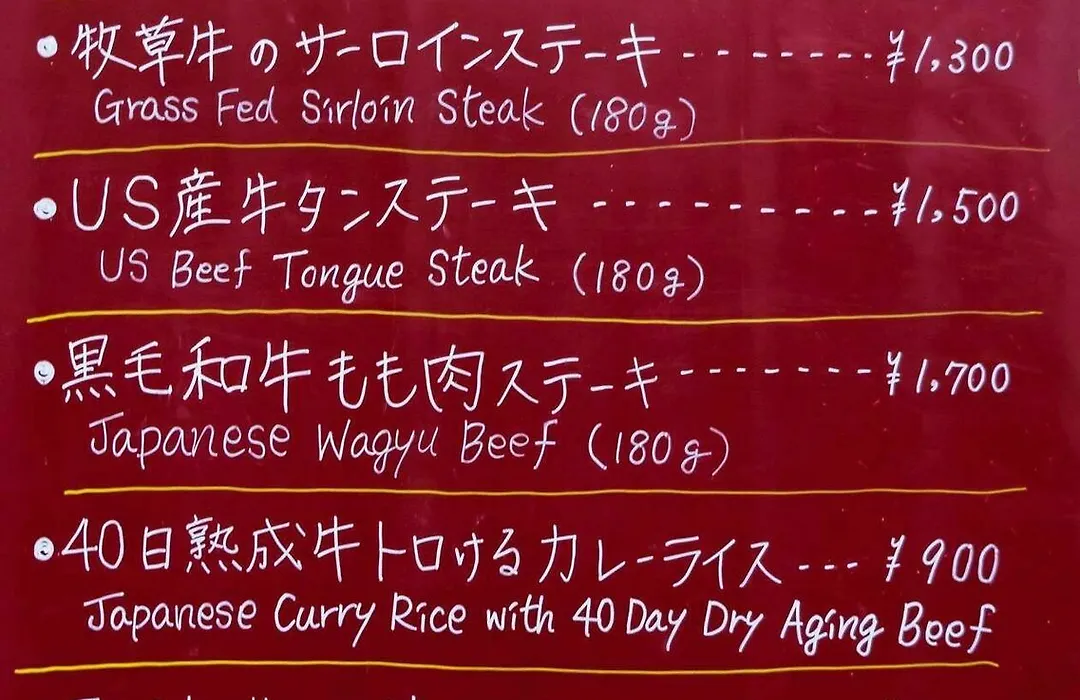 • 牧草牛のサーロインステーキ -------- ¥1,300
Grass Fed Sirloin Steak (180g)
• US産牛タンステーキ ---------- ¥1,500
US Beef Tongue Steak (180g)
• 黒毛和牛もも肉ステーキ ------- ¥1,700
Japanese Wagyu Beef (180g)
• 40日熟成牛トロけるカレーライス --- ¥900
Japanese Curry Rice with 40 Day Dry Aging Beef